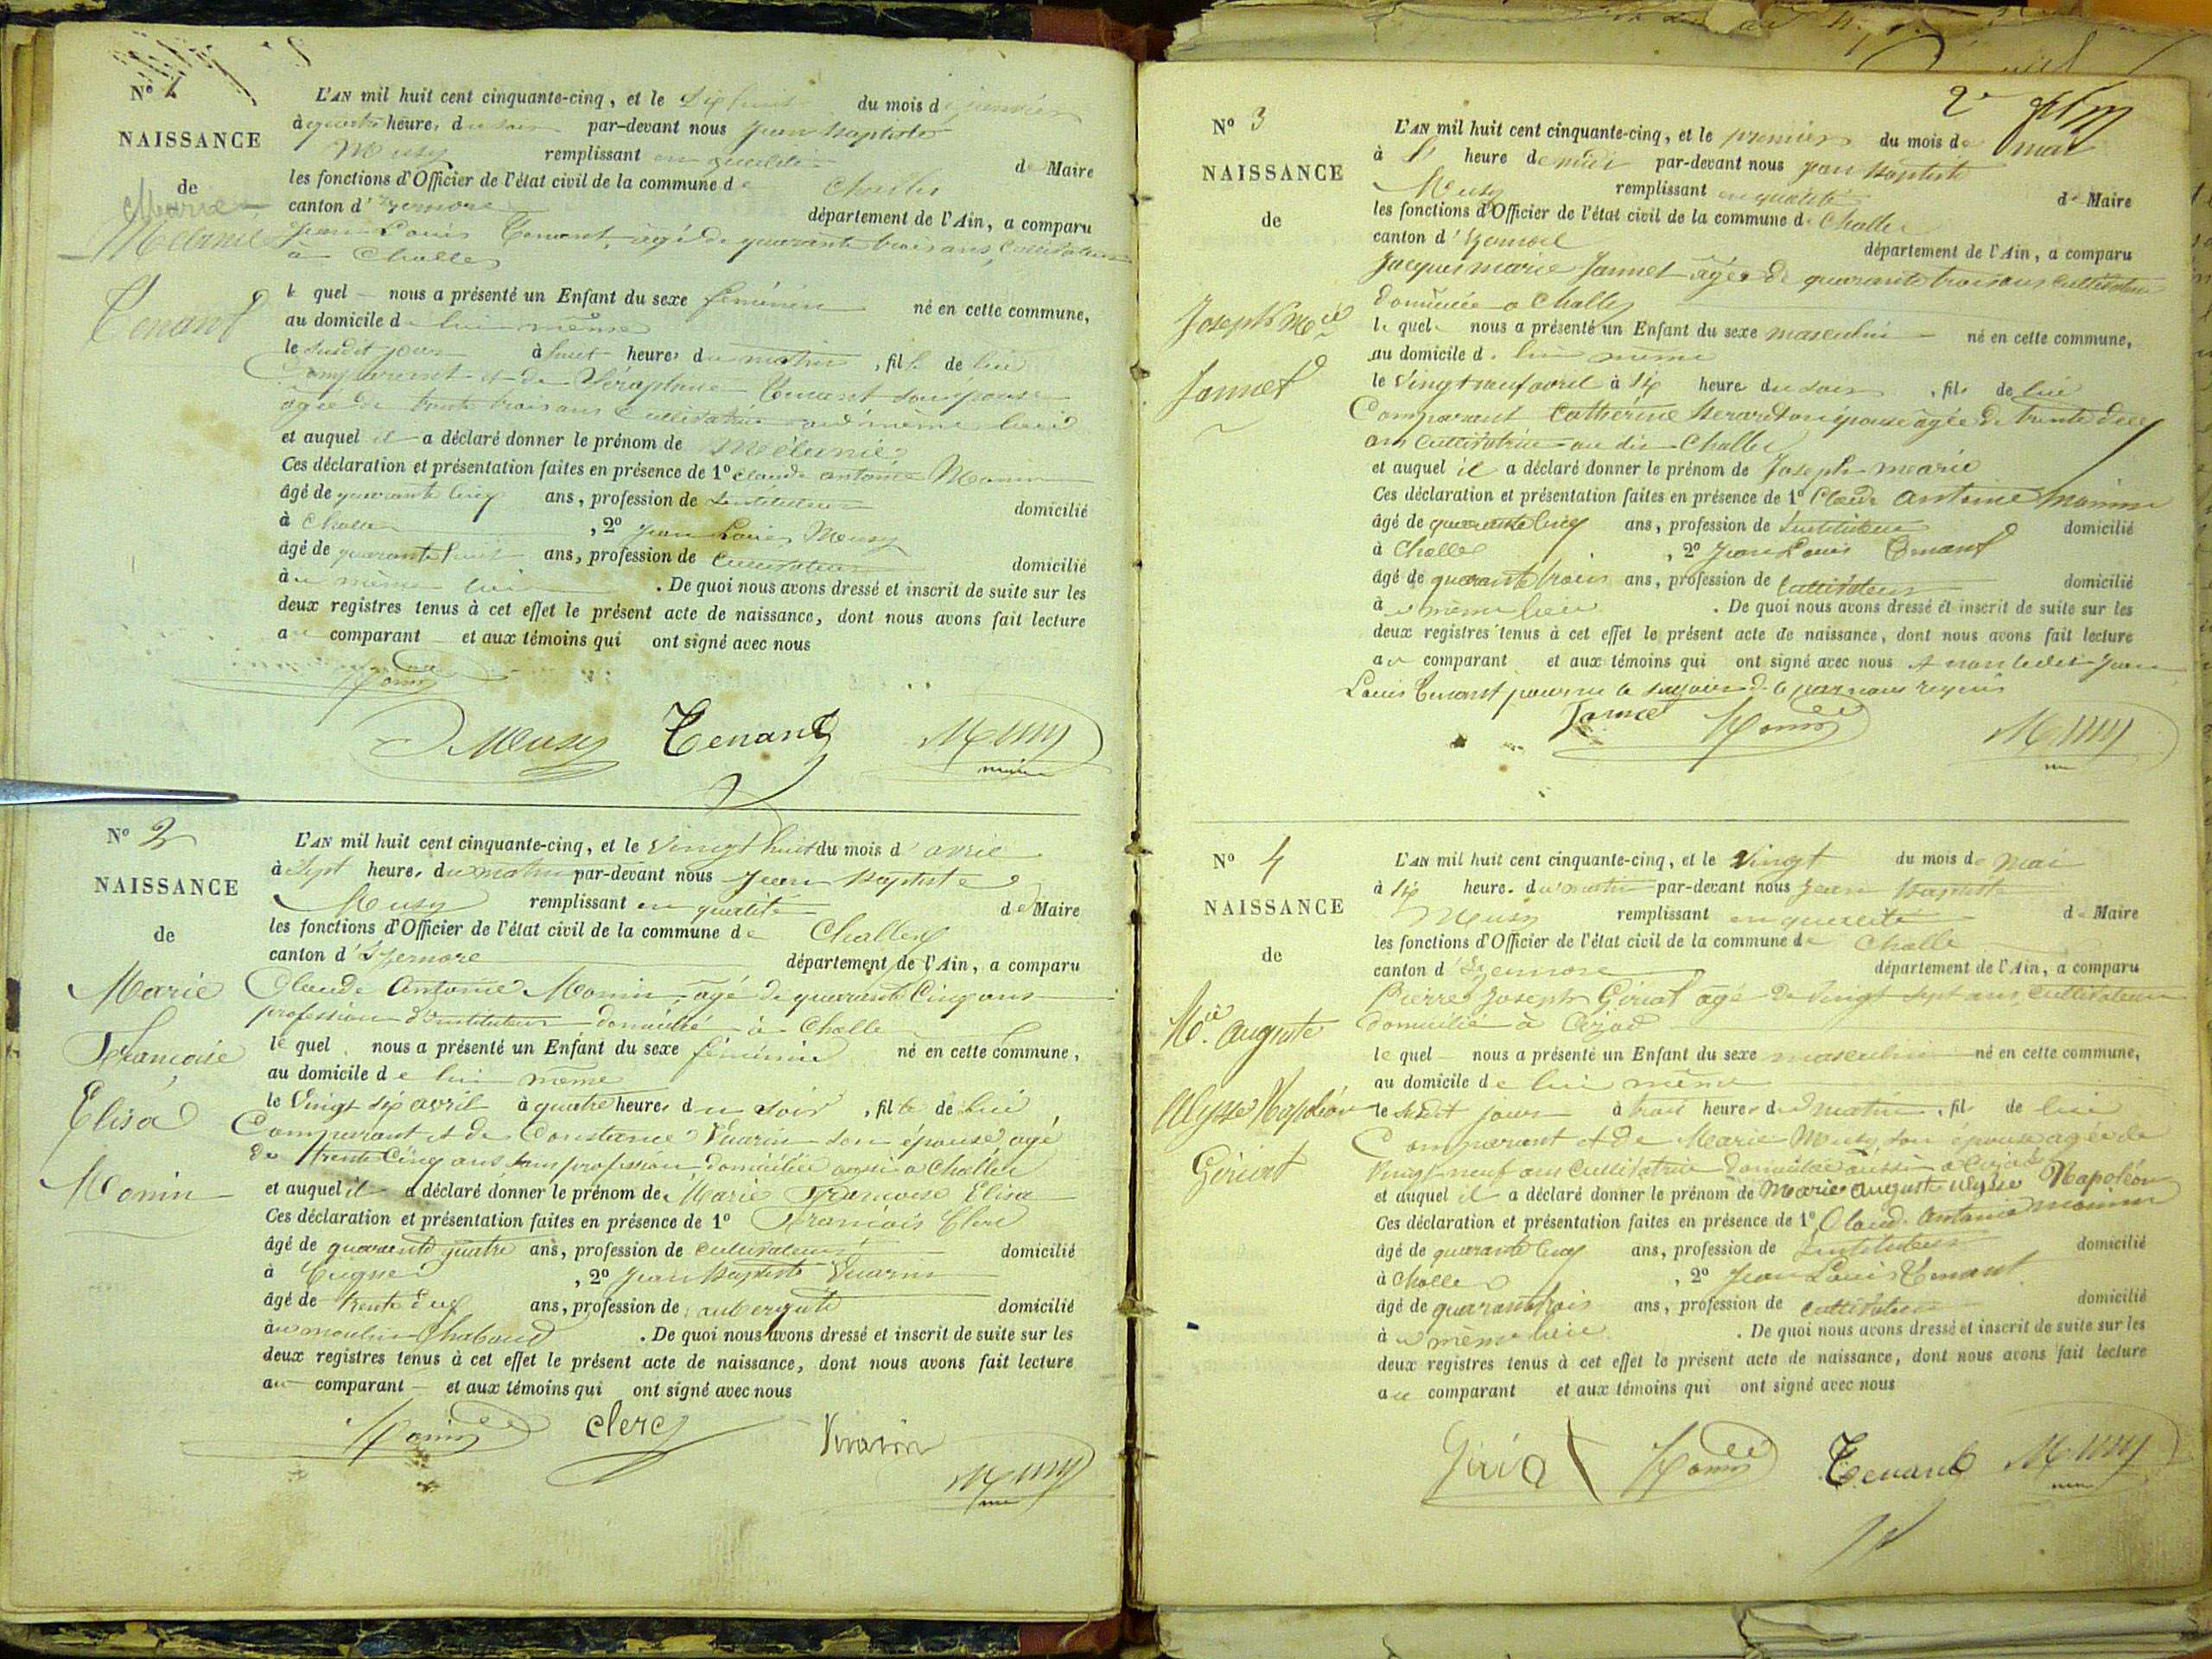 Nº 1
NAISSANCE
de
Marie
Mélanie
Tenant
L'AN mil huit cent cinquante-cinq, et le dix huit du mois de janvier
à quatre heures du soir par-devant nous Jean Baptiste
Musy remplissant en qualité de Maire
les fonctions d'Officier de l'état civil de la commune de Challes
canton d'Izernore département de l'Ain, a comparu
Jean Louis Tenant, âgé de quarante trois ans, Cultivateur
à Challes
le quel nous a présenté un Enfant du sexe féminin né en cette commune,
au domicile de lui même
le susdit jour à huit heures du matin, fille de lui
Comparant et de Séraphine Tenant son épouse
âgée de trente trois ans Cultivatrice au même lieu
et auquel il a déclaré donner le prénom de Mélanie
Ces déclaration et présentation faites en présence de 1º Claude Antoine Monin
âgé de quarante cinq ans, profession de Instituteur domicilié
à Challes, 2º Jean Louis Musy
âgé de quarante huit ans, profession de Cultivateur domicilié
au même lieu. De quoi nous avons dressé et inscrit de suite sur les
deux registres tenus à cet effet le présent acte de naissance, dont nous avons fait lecture
au comparant et aux témoins qui ont signé avec nous
Monin
Musy Tenant Musy
maire
Nº 2
NAISSANCE
de
Marie
Françoise
Elisa
Monin
L'AN mil huit cent cinquante-cinq, et le Vingt huit du mois d'avril
à Sept heures du matin par-devant nous Jean Baptiste
Musy remplissant en qualité de Maire
les fonctions d'Officier de l'état civil de la commune de Challes
canton d'Izernore département de l'Ain, a comparu
Claude Antoine Monin, âgé de quarante Cinq ans
profession d'instituteur domicilié à Challe
le quel nous a présenté un Enfant du sexe féminin né en cette commune,
au domicile de lui même
le Vingt six avril à quatre heures du soir, fille de lui
Comparant et de Constance Vuarin son épouse agé
de trente Cinq ans sans profession domiciliée aussi a Challes
et auquel il a déclaré donner le prénom de Marie Françoise Elisa
Ces déclaration et présentation faites en présence de 1º François Clerc
âgé de quarante quatre ans, profession de cultivateur domicilié
à, 2º Jean Baptiste Vuarin
âgé de trente deux ans, profession de aubergiste domicilié
au moulin Chabaud. De quoi nous avons dressé et inscrit de suite sur les
deux registres tenus à cet effet le présent acte de naissance, dont nous avons fait lecture
au comparant et aux témoins qui ont signé avec nous
Monin clerc Vuarin
Musy
2
Nº 3
NAISSANCE
de
Joseph Mie
Jannet
L'AN mil huit cent cinquante-cinq, et le premier du mois de mai
à heure de midi par-devant nous Jean Baptiste
Musy remplissant en qualité de Maire
les fonctions d'Officier de l'état civil de la commune de Challes
canton d'Izernore département de l'Ain, a comparu
Jacques marie Jannet âgée de quarante trois ans cultivateur
domicilié a Challes
le quel nous a présenté un Enfant du sexe masculin né en cette commune,
au domicile de lui même
le Vingt neuf avril à six heure du soir, fils de lui
Comparant Catherine son épouse âgée de trente deux
ans cultivatrice au dit Challes
et auquel il a déclaré donner le prénom de Joseph marie
Ces déclaration et présentation faites en présence de 1º Claude Antoine Monin
âgé de quarante cinq ans, profession de Instituteur domicilié
à Challes, 2º Jean Louis Tenant
âgé de quarante trois ans, profession de Cultivateur domicilié
au même lieu. De quoi nous avons dressé et inscrit de suite sur les
deux registres tenus à cet effet le présent acte de naissance, dont nous avons fait lecture
au comparant et aux témoins qui ont signé avec nous et non ledit Jean
Louis Tenant pour ne le savoir de ce par nous requis
Monin Musy
Nº 4
NAISSANCE
de
Mie Auguste
Ulysse Napoléon
Gériat
L'AN mil huit cent cinquante-cinq, et le Vingt du mois de Mai
à six heure du matin par-devant nous Jean Baptiste
Musy remplissant en qualité de Maire
les fonctions d'Officier de l'état civil de la commune de Challe
canton d'Izernore département de l'Ain, a comparu
Pierre Joseph Giriat âgé de Vingt sept ans, cultivateur
domicilié à
le quel nous a présenté un Enfant du sexe masculin né en cette commune,
au domicile de lui même
le susdit jour à trois heures du matin, fils de lui
Comparant et de Marie Musy son épouse agée de
Vingt neuf ans cultivatrice domiciliée aussi a
et auquel il a déclaré donner le prénom de Marie Auguste Ulysse Napoléon
Ces déclaration et présentation faites en présence de 1º Claude Antoine Monin
âgé de quarante cinq ans, profession de Instituteur domicilié
à Challe, 2º Jean Louis Tenant
âgé de quarante trois ans, profession de cultivateur domicilié
au même lieu. De quoi nous avons dressé et inscrit de suite sur les
deux registres tenus à cet effet le présent acte de naissance, dont nous avons fait lecture
au comparant et aux témoins qui ont signé avec nous
Giriat Monin Tenant Musy